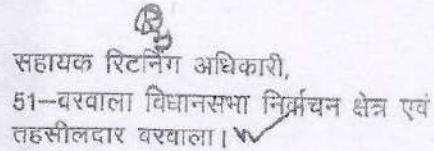 सहायक रिटर्निंग अधिकारी,
51–वरवाला विधानसभा निर्वाचन क्षेत्र एवं
तहसीलदार वरवाला।